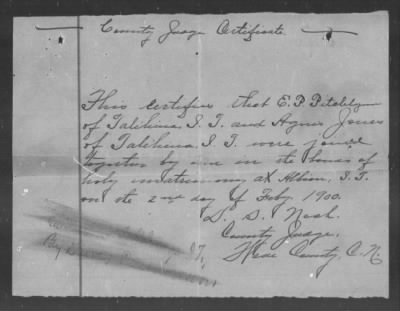 County Judge Certificate.
This certifies that E. P. Pitchlynn
of Talihina, I. T. and Agnes Jones
of Talihina I. T. were joined
together by me in the bonds of
holy matrimony at Albion, I. T.
on the 2nd day of Feby. 1900.
S. S. Nash.
County Judge,
Wade County, C. N.